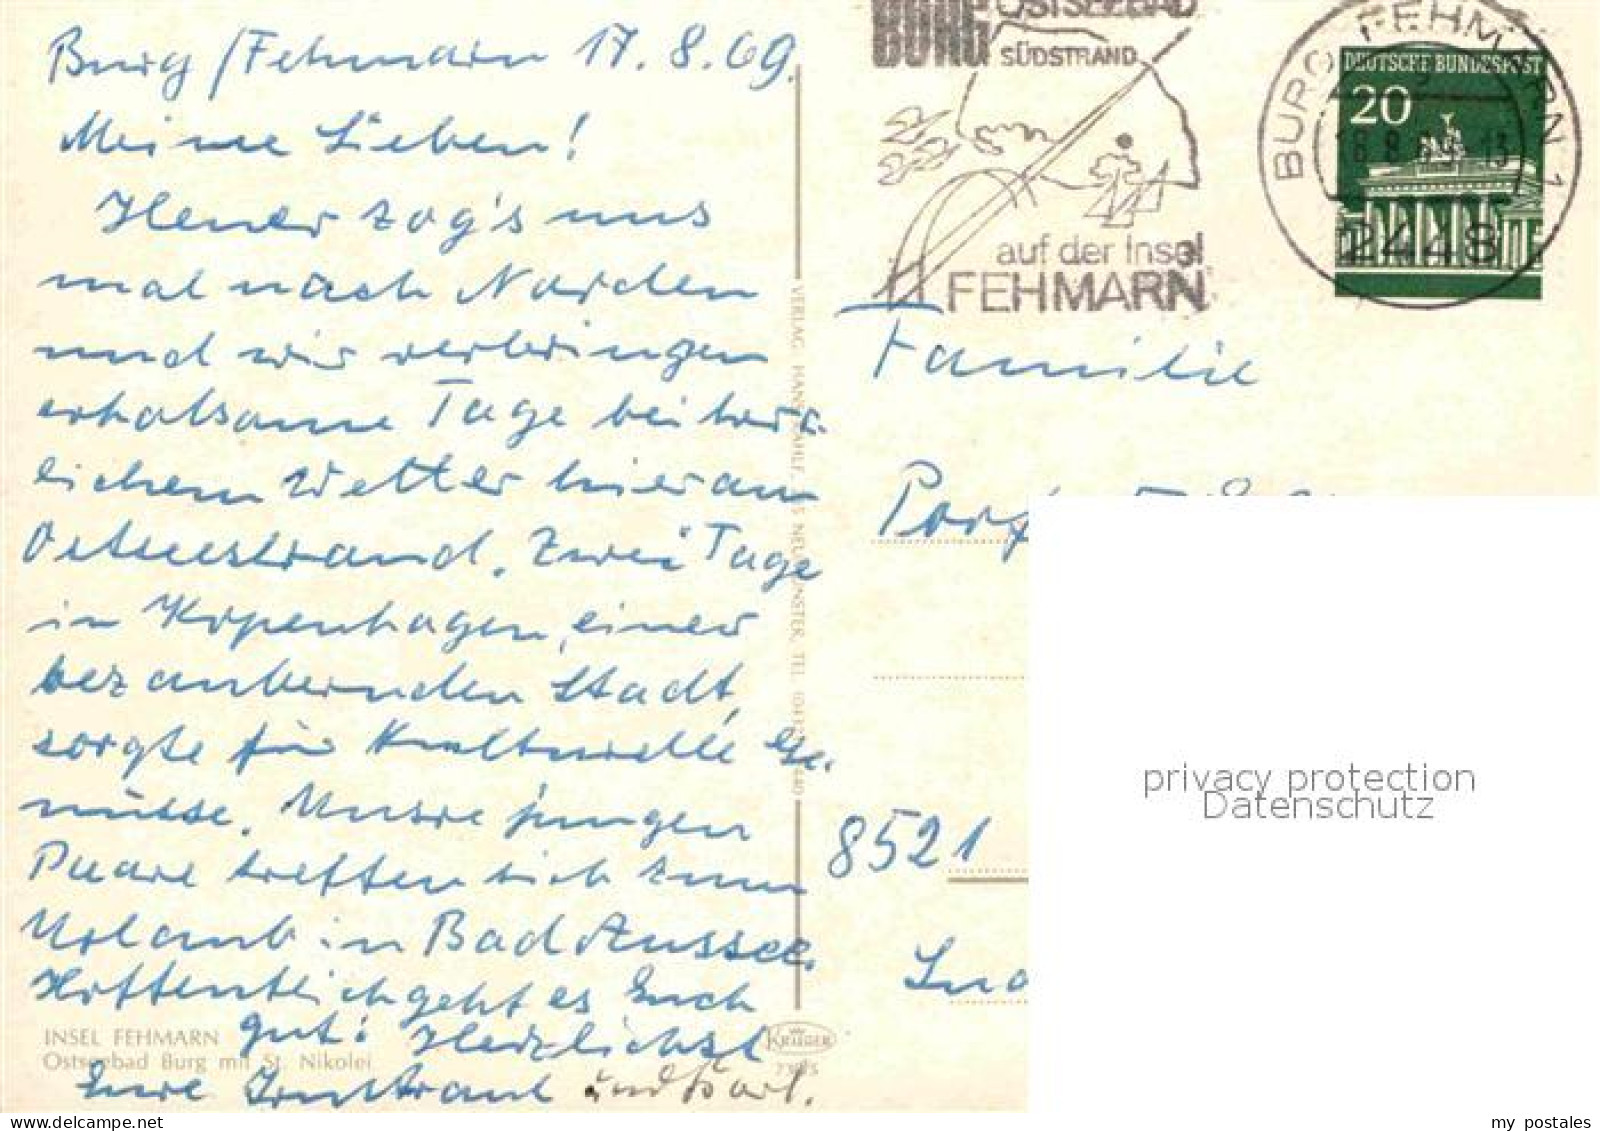 Burg / Fehmarn 17. 8. 69.
Meine Lieben!
Heuer zog's uns
mal nach Norden
und wir verbringen
erholsame Tage bei herr-
lichem Wetter hier am
Ostseestrand. Zwei Tage
in Kopenhagen, einer
bezaubernden Stadt,
sorgte für kulturelle Ge-
nüsse. Unsre jungen
Paare treffen sich zum
Urlaub in Bad Aussee.
Hoffentlich geht es Euch
gut! Herzlichst
Eure Irmtraud und Karl.
INSEL FEHMARN
Ostseebad Burg mit St. Nikolei
VERLAG HANS KAHLF, 235 NEUMÜNSTER, TEL.
KRÜGER
BURG OSTSEEBAD
SÜDSTRAND
auf der Insel
FEHMARN
BURG FEHMARN 1
18.8.69-13
2448
DEUTSCHE BUNDESPOST
20
Familie
8521
privacy protection
Datenschutz
my postales